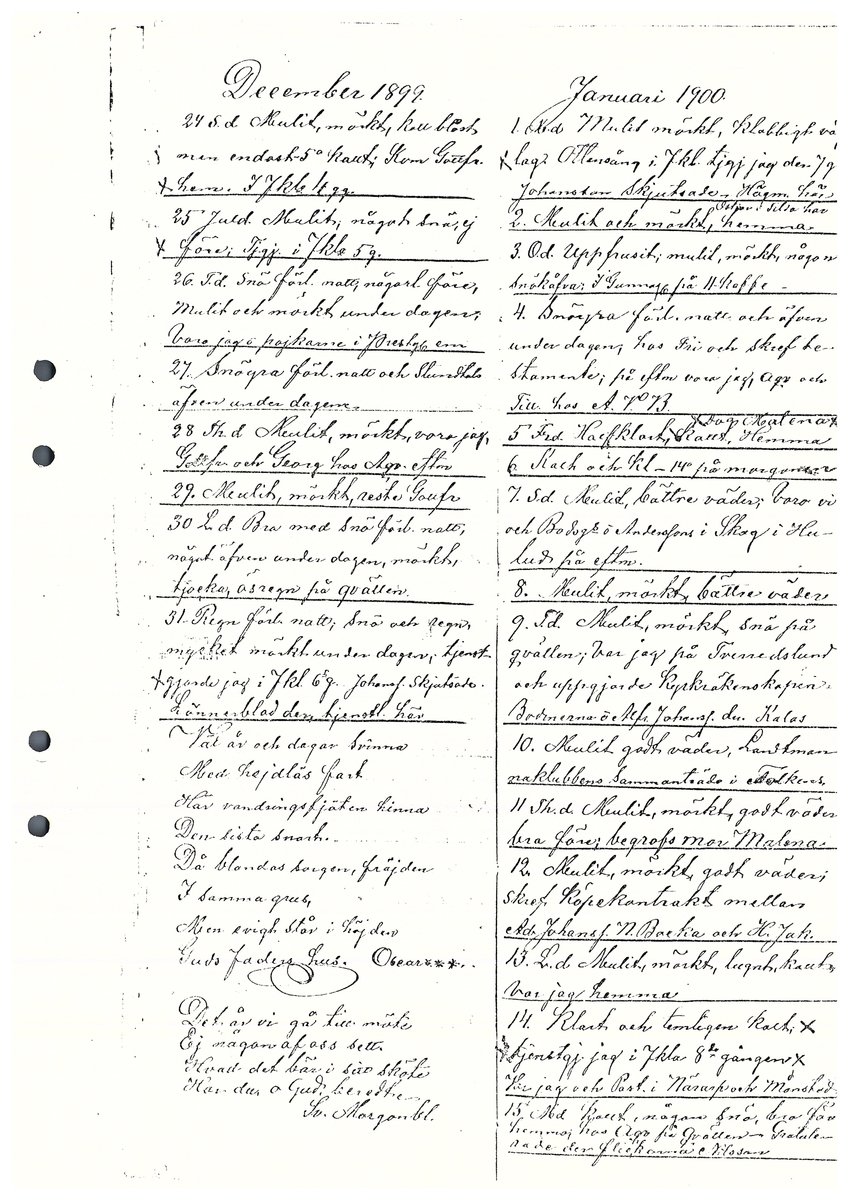 December 1899.
24 S.d Mulit, mörkt, kall blåst
men endast 5° kallt; Kom Gottfr.
hem. I Jkl. 4 gg.
25 Juld. Mulit; något snö; ej
före; Tjgj. i Jkla 5 g.
26. T.d. Snö förl. natt; någorl. före,
Mulit och mörkt under dagen;
Voro jag o pojkarne i Prestg. em
27. Snöyra förl. natt och
äfven under dagen.
28 Th.d Mulit, mörkt, voro jag,
Gottfr och Georg hos Ago. eftm
29. Mulit, mörkt, reste Gottfr
30 L.d. Bra med snö förl. natt,
något äfven under dagen, mörkt,
tjocka, ösregn på qvällen.
31. Regn förl. natt; snö och regn,
mycket mörkt under dagen; tjenst-
gjorde jag i Jkl. 6 g. Johansf. Skjutsade.
Lönnerblad den tjenstl. här
Väl år och dagar svinna
Med hejdlös fart
Här vandringsfjäten hinna
Den sista snart.
Då blandas sorgen, fröjden
I samma grus,
Men evigt står i höjden
Guds Faders hus. Oscar ***.
Det år vi gå till möte
Ej någon af oss sett.
Hvad det bär i sitt sköte
Har du o Gud beredt.
Sv. Morgonbl.
Januari 1900.
1. Md Mulit mörkt, klabbigt vä
lag. Ottesång i Jkl. tjgj jag den 7 g
Johanson Skjutsade. Hägm. här
2. Mulit och mörkt, hemma
3. Od. Uppfrusit; mulit, mörkt, någon
snökåfva; I Gunnag. på 11-kaffe
4. Snöyra förl. natt och äfven
under dagen; hos Fri och skref te-
stamente; på eftm voro jag, Ago och
Till. hos A.
Dog Malena
5 Frd. Halfklart, Kallt, Hemma
6 Kallt och Kl - 14° på morgonen
7. Sd. Mulid, bättre väder; Voro vi
och Anderssons i Skog i Hu-
lud på eftm.
8. Mulit, mörkt, bättre väder
9. T.d. Mulit, mörkt, snö på
qvällen; var jag på Tvinnedslund
och uppgjorde Kyrkräkenskapen.
Johansf. du. Kalas
10. Mulit godt väder, Landtman
naklubbens sammanträde i Folkens.
11 Th.d. Mulit, mörkt, godt väder
bra före; begrofs mor Malena
12. Mulit, mörkt, godt väder;
Skref Köpekontrakt mellan
Ad. Johansf. N. Backa och H. Jak.
13. L.d Mulit, mörkt, lugnt, kallt,
Var jag hemma
14. Klart och temligen kallt;
tjenstgj jag i Jkla 8de gången
Kr jag och Post. i Närarp och Månstad
15. Md Kallt, någon snö, bra före
hemma; hos Ago på Qvällen - Gratule-
rade der flickorna Nilsson